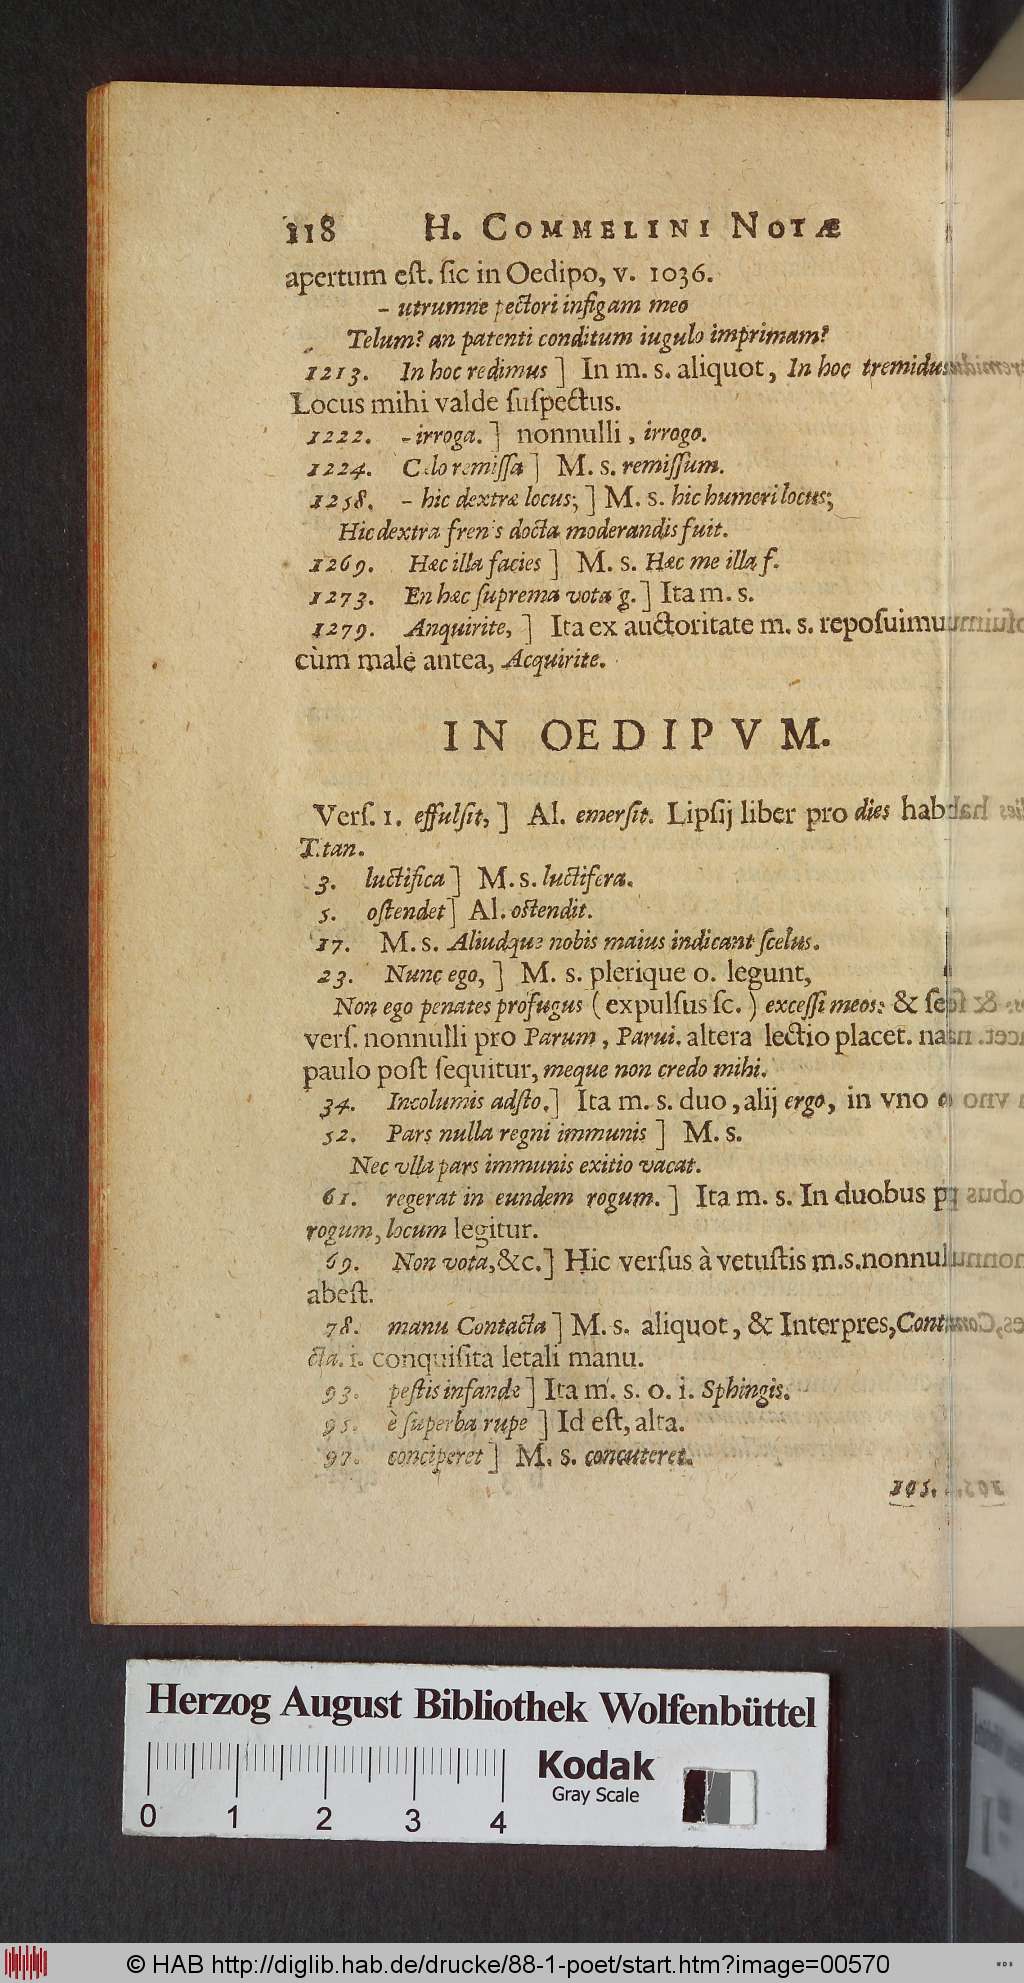 118 H. COMMELINI NOTÆ
apertum eſt. ſic in Oedipo, v. 1036.
- utrumne pectori infigam meo
Telum? an patenti conditum iugulo imprimam?
1213. In hoc redimus ] In m. s. aliquot, In hoc tremidus
Locus mihi valde ſuſpectus.
1222. - irroga. ] nonnulli, irrogo.
1224. Celo remiſſa ] M. s. remiſſum.
1258. - hic dextræ locus; ] M. s. hic humeri locus;
Hic dextra frenis docta moderandis fuit.
1269. Hæc illa facies ] M. s. Hæc me illa f.
1273. En hæc ſuprema vota g. ] Ita m. s.
1279. Anquirite, ] Ita ex auctoritate m. s. repoſuimu
cùm malè antea, Acquirite.
IN OEDIPVM.
Verſ. 1. effulſit, ] Al. emerſit. Lipſij liber pro dies hab
Titan.
3. luctifica ] M. s. luctifera.
5. oſtendet ] Al. oſtendit.
17. M. s. Aliudque nobis maius indicant ſcelus.
23. Nunc ego, ] M. s. plerique o. legunt,
Non ego penates profugus ( expulſus ſc. ) exceſſi meos: & ſe
verſ. nonnulli pro Parum, Parui. altera lectio placet. na
paulo poſt ſequitur, meque non credo mihi.
34. Incolumis adſto. ] Ita m. s. duo, alij ergo, in vno
52. Pars nulla regni immunis ] M. s.
Nec vlla pars immunis exitio vacat.
61. regerat in eundem rogum. ] Ita m. s. In duobus p
rogum, locum legitur.
69. Non vota, &c. ] Hic verſus à vetuſtis m.s. nonnul
abeſt.
78. manu Contacta ] M. s. aliquot, & Interpres, Cont
cta. i. conquiſita letali manu.
93. peſtis infandæ ] Ita m. s. o. i. Sphingis.
95. è ſuperba rupe ] Id eſt, alta.
97. conciperet ] M. s. concuteret.
105.
Herzog August Bibliothek Wolfenbüttel
Kodak
Gray Scale
0 1 2 3 4
© HAB http://diglib.hab.de/drucke/88-1-poet/start.htm?image=00570